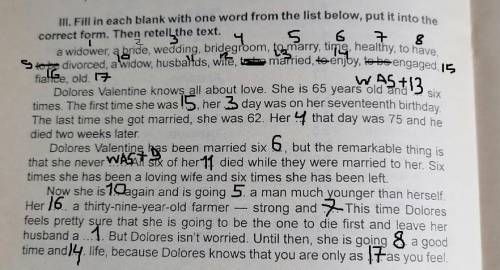 III. Fill in each blank with one word from the list below, put it into the
correct form. Then retell the text.
1 2 3 4 5 6 7 8
a widower, a bride, wedding, bridegroom, to marry, time, healthy, to have,
9 divorced, a widow, husbands, wife, married, to enjoy, engaged, 15
fiance, old. 17
16
Dolores Valentine knows all about love. She is 65 years old and WAS+13 six
times. The first time she was 15, her 3 day was on her seventeenth birthday.
The last time she got married, she was 62. Her 4 that day was 75 and he
died two weeks later.
Dolores Valentine has been married six 6, but the remarkable thing is
that she never WAS+9 All six of her 11 died while they were married to her. Six
times she has been a loving wife and six times she has been left.
Now she is 10 again and is going 5 a man much younger than herself.
Her 16 a thirty-nine-year-old farmer — strong and 7 This time Dolores
feels pretty sure that she is going to be the one to die first and leave her
husband a ...1. But Dolores isn't worried. Until then, she is going 8 a good
time and 14. life, because Dolores knows that you are only as 17 as you feel.